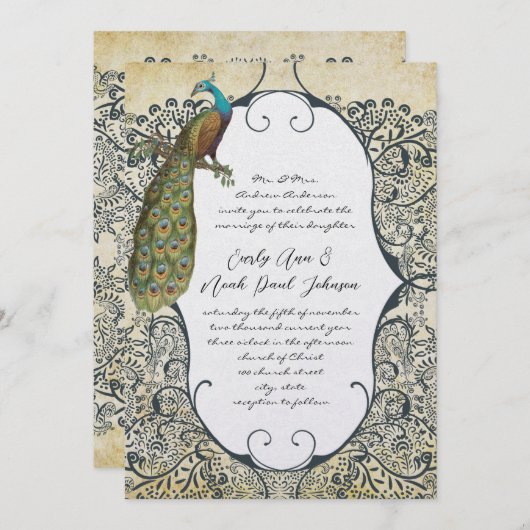 Mr. & Mrs.
Andrew Anderson
invite you to celebrate the
marriage of their daughter
Everly Ann &
Noah Paul Johnson
saturday the fifth of november
two thousand current year
three o'clock in the afternoon
church of Christ
100 church street
city, state
reception to follow